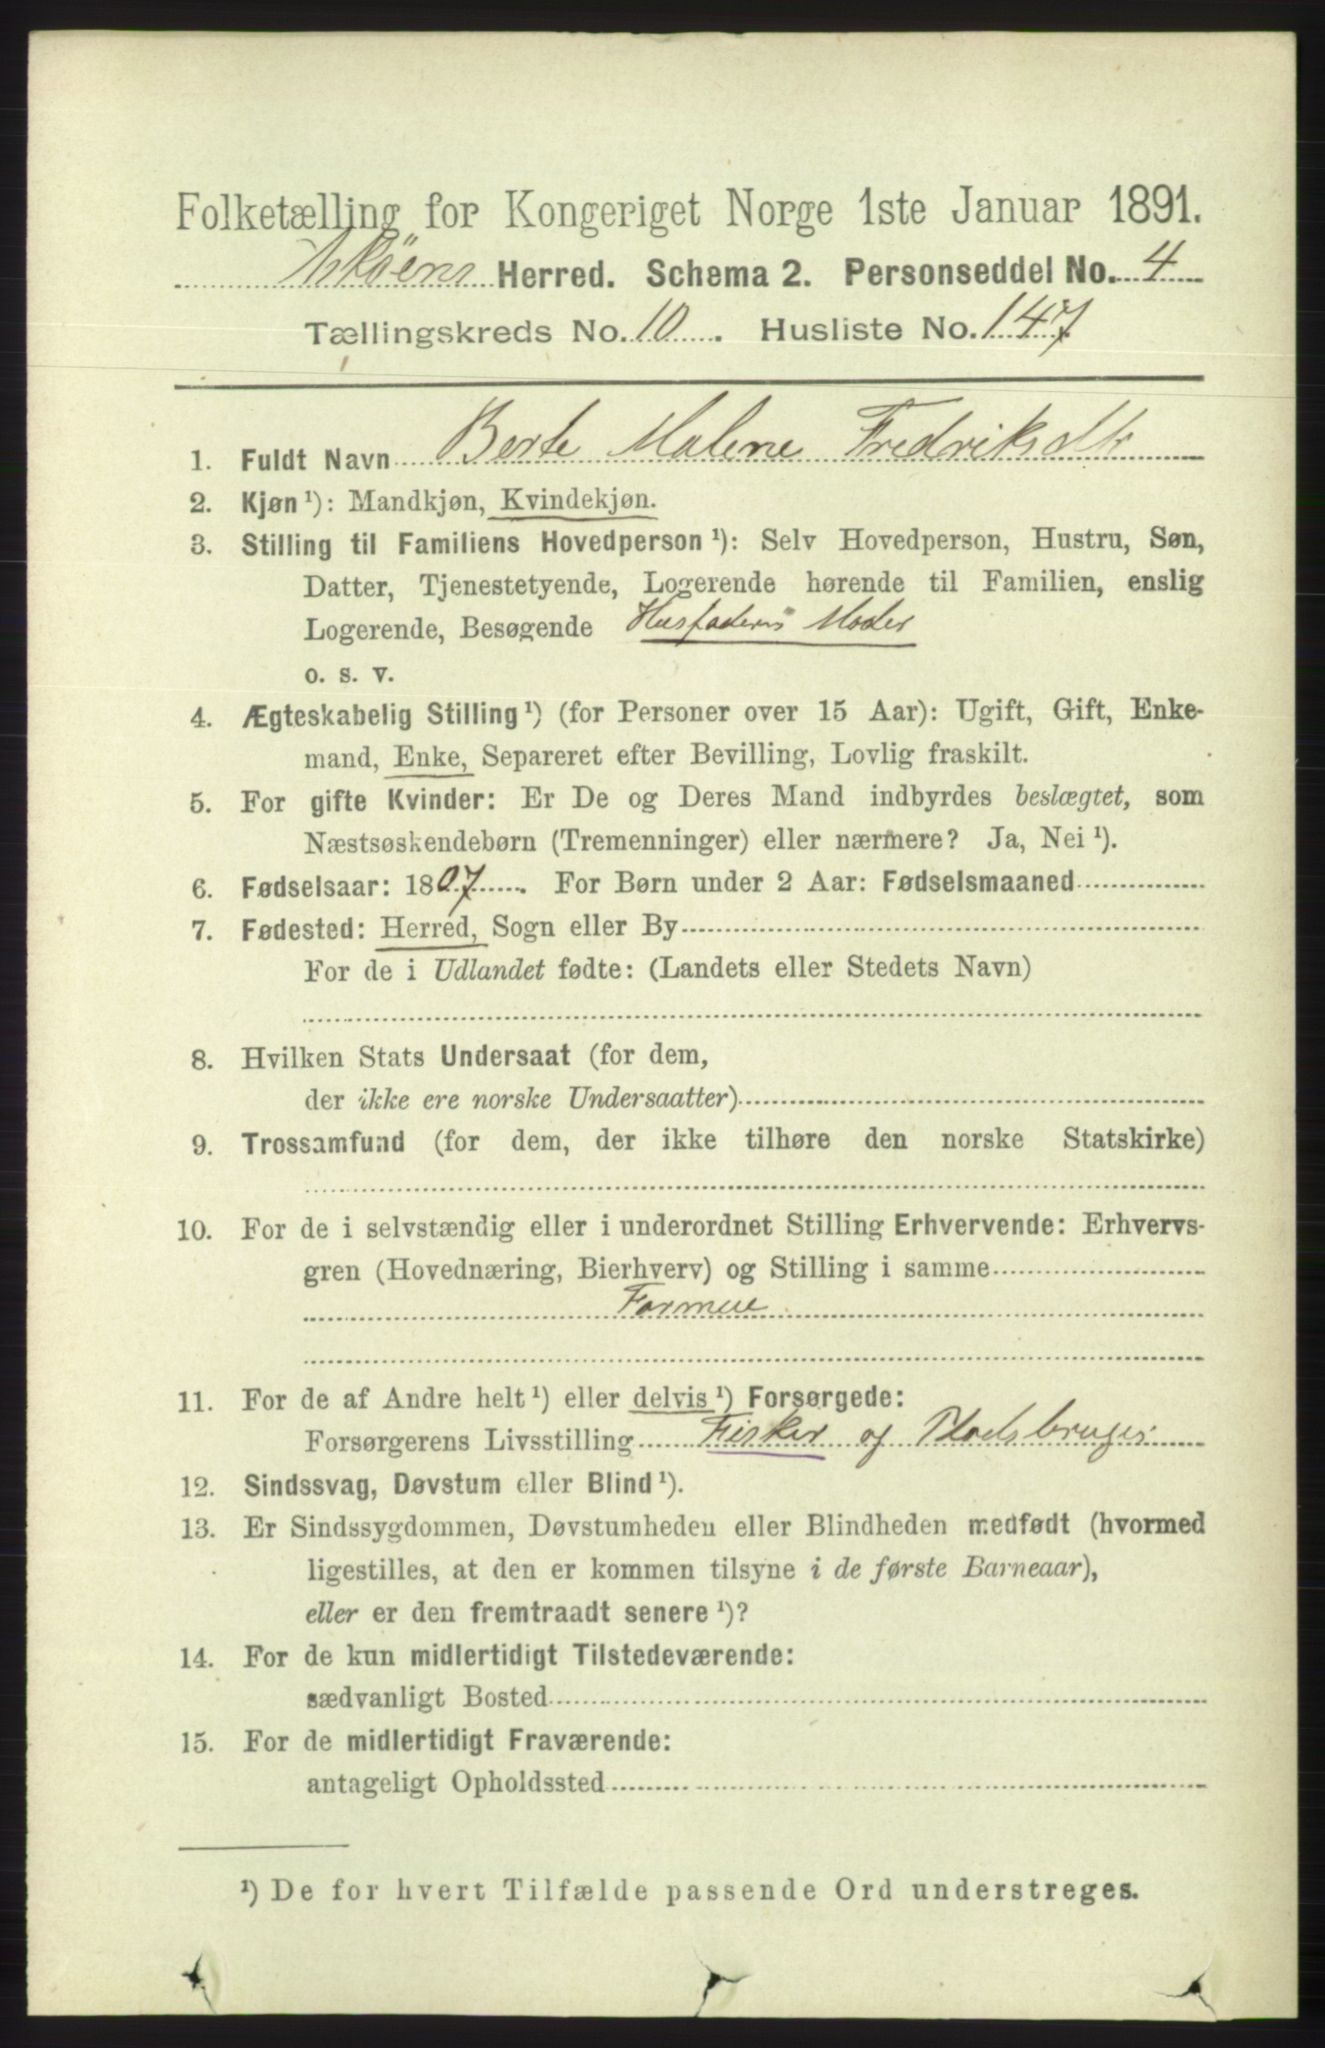 Folketælling for Kongeriget Norge 1ste Januar 1891.
Askøens Herred. Schema 2. Personseddel No. 4
Tællingskreds No. 10. Husliste No. 147
1. Fuldt Navn Berte Malene Fredriksdtr
2. Kjøn ¹): Mandkjøn, Kvindekjøn.
3. Stilling til Familiens Hovedperson ¹): Selv Hovedperson, Hustru, Søn,
Datter, Tjenestetyende, Logerende hørende til Familien, enslig
Logerende, Besøgende Husfaderens Moder
o. s. v.
4. Ægteskabelig Stilling ¹) (for Personer over 15 Aar): Ugift, Gift, Enke-
mand, Enke, Separeret efter Bevilling, Lovlig fraskilt.
5. For gifte Kvinder: Er De og Deres Mand indbyrdes beslægtet, som
Næstsøskendebørn (Tremenninger) eller nærmere? Ja, Nei ¹).
6. Fødselsaar: 1807. For Børn under 2 Aar: Fødselsmaaned
7. Fødested: Herred, Sogn eller By
For de i Udlandet fødte: (Landets eller Stedets Navn)
8. Hvilken Stats Undersaat (for dem,
der ikke ere norske Undersaatter)
9. Trossamfund (for dem, der ikke tilhøre den norske Statskirke)
10. For de i selvstændig eller i underordnet Stilling Erhvervende: Erhvervs-
gren (Hovednæring, Bierhverv) og Stilling i samme
Formue
11. For de af Andre helt ¹) eller delvis ¹) Forsørgede:
Forsørgerens Livsstilling Fisker og Pladsbruger
12. Sindssvag, Døvstum eller Blind ¹).
13. Er Sindssygdommen, Døvstumheden eller Blindheden medfødt (hvormed
ligestilles, at den er kommen tilsyne i de første Barneaar),
eller er den fremtraadt senere ¹)?
14. For de kun midlertidigt Tilstedeværende:
sædvanligt Bosted
15. For de midlertidigt Fraværende:
antageligt Opholdssted
¹) De for hvert Tilfælde passende Ord understreges.